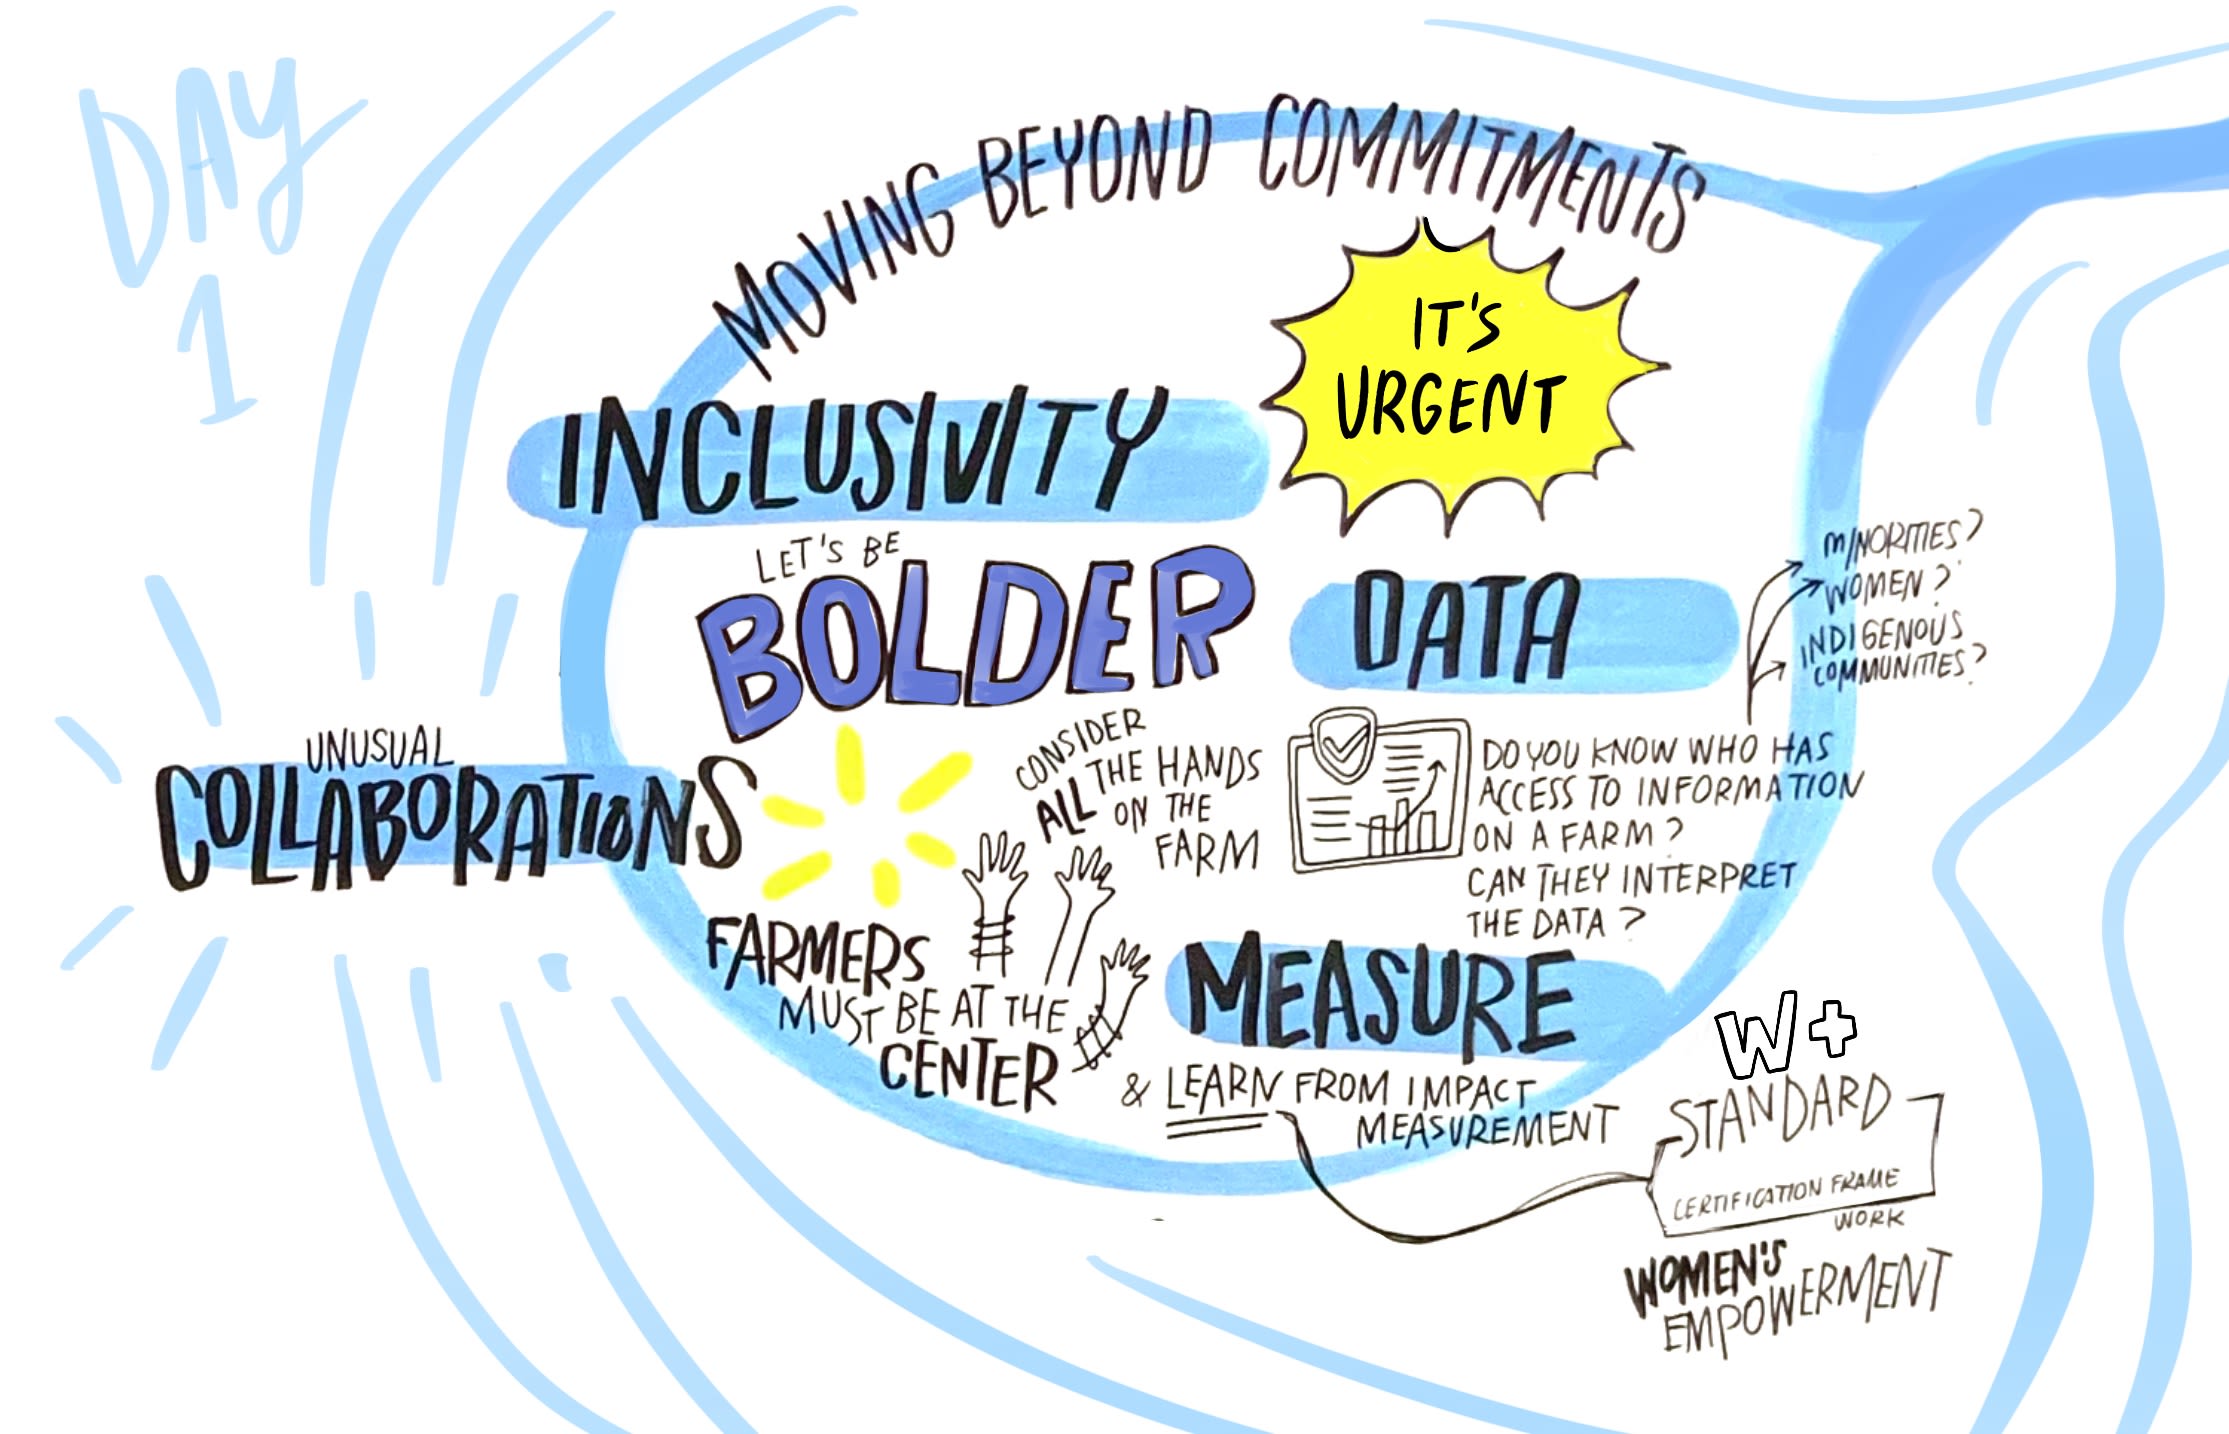 DAY
1
MOVING BEYOND COMMITMENTS
IT'S
URGENT
INCLUSIVITY
LET'S BE
BOLDER
UNUSUAL
COLLABORATIONS
CONSIDER
ALL THE HANDS
ON THE
FARM
FARMERS
MUST BE AT THE
CENTER
DATA
MINORITIES?
WOMEN?
INDIGENOUS
COMMUNITIES?
DO YOU KNOW WHO HAS
ACCESS TO INFORMATION
ON A FARM?
CAN THEY INTERPRET
THE DATA?
MEASURE
& LEARN FROM IMPACT
MEASUREMENT
W+
STANDARD
CERTIFICATION FRAME
WORK
WOMEN'S
EMPOWERMENT